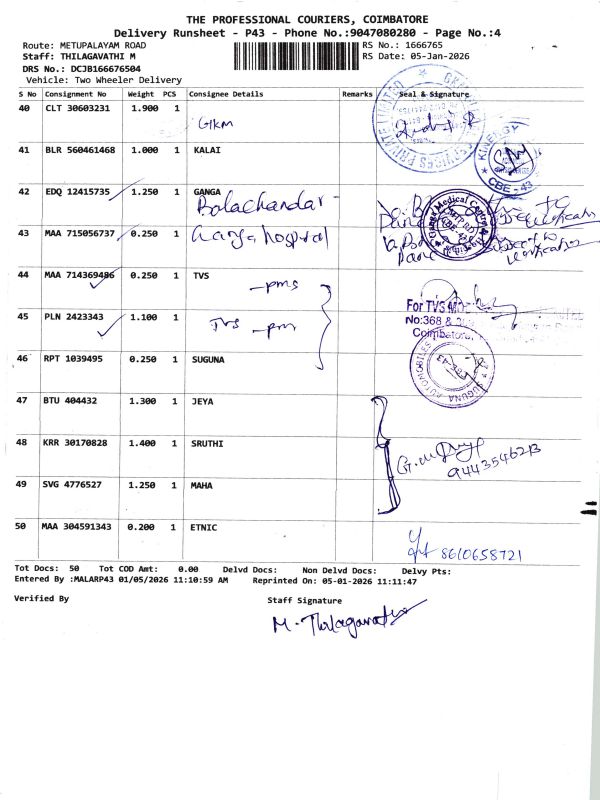 THE PROFESSIONAL COURIERS, COIMBATORE
Delivery Runsheet - P43 - Phone No.:9047080280 - Page No.:4
Route: METUPALAYAM ROAD
RS No.: 1666765
Staff: THILAGAVATHI M
RS Date: 05-Jan-2026
DRS No.: DCJB166676504
Vehicle: Two Wheeler Delivery
S No Consignment No Weight PCS Consignee Details Remarks Seal & Signature
40 CLT 30603231 1.900 1
GKM
41 BLR 560461468 1.000 1 KALAI
KINERGY
CBE - 43
42 EDQ 12415735 1.250 1 GANGA
Balachandar
43 MAA 715056737 0.250 1 Ganga hospital
44 MAA 714369486 0.250 1 TVS
- pms
For TVS
No:368 &
Coimbatore
45 PLN 2423343 1.100 1
TVS - pm
46 RPT 1039495 0.250 1 SUGUNA
SUGUNA AUTOMOBILES
CBE-43
47 BTU 404432 1.300 1 JEYA
48 KRR 30170828 1.400 1 SRUTHI
9443546213
49 SVG 4776527 1.250 1 MAHA
50 MAA 304591343 0.200 1 ETNIC
8610658721
Tot Docs: 50 Tot COD Amt: 0.00 Delvd Docs: Non Delvd Docs: Delvy Pts:
Entered By :MALARP43 01/05/2026 11:10:59 AM Reprinted On: 05-01-2026 11:11:47
Verified By Staff Signature
M. Thilagavathi